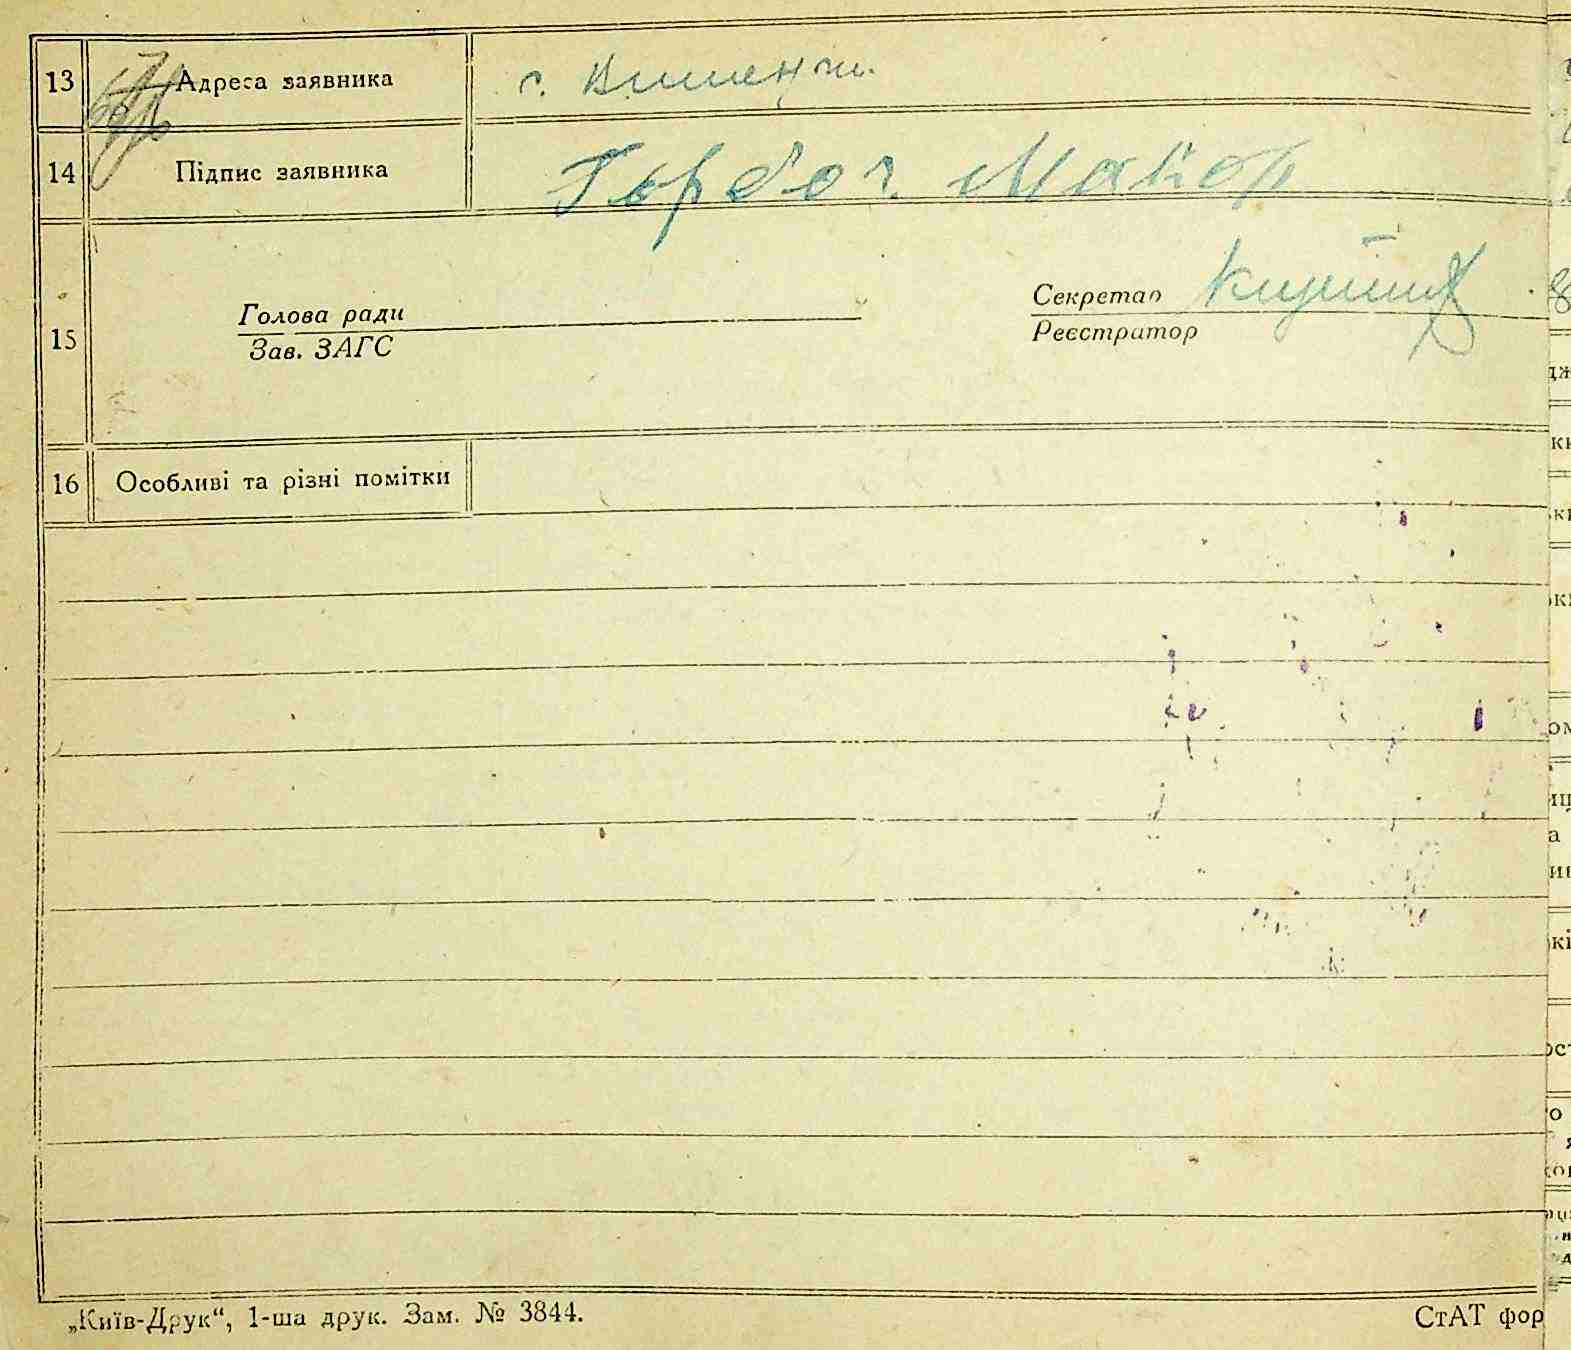 13 Адреса заявника с. Вишенки.
14 Підпис заявника Горбач. Макар
15 Голова ради Секретар
Зав. ЗАГС Реєстратор
16 Особливі та різні помітки
„Київ-Друк“, 1-ша друк. Зам. № 3844. СтАТ фор